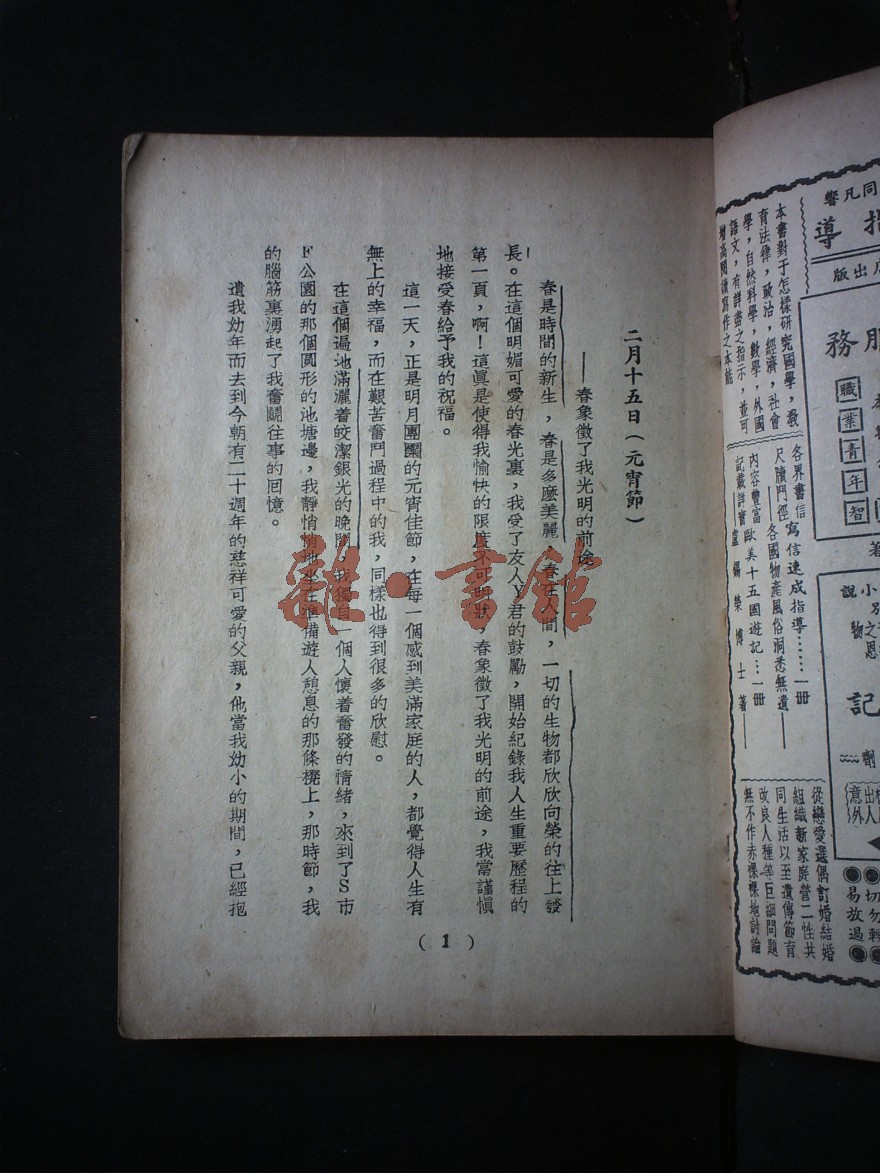 二月十五日（元宵節）
——春象徵了我光明的前途
春是時間的新生，春是多麼美麗，春在人間，一切的生物都欣欣向榮的往上發
長。在這個明媚可愛的春光裏，我受了友人Y君的鼓勵，開始紀錄我人生重要歷程的
第一頁，啊！這眞是使得我愉快的限度不可明狀，春象徵了我光明的前途，我當謹愼
地接受春給予我的祝福。
這一天，正是明月團圞的元宵佳節，在每一個感到美滿家庭的人，都覺得人生有
無上的幸福，而在艱苦奮鬥過程中的我，同樣也得到很多的欣慰。
在這個遍地滿灑着皎潔銀光的晚間，我獨自一個人懷着奮發的情緒，來到了S市
F公園的那個圓形的池塘邊，我靜悄悄地坐在準備遊人憩息的那條櫈上，那時節，我
的腦筋裏湧起了我奮鬪往事的回憶。
遺我幼年而去到今朝有二十週年的慈祥可愛的父親，他當我幼小的期間，已經抱
（1）
同凡響
指導
店出版
本書對于怎樣研究國學，教
育法律，政治，經濟，社會
學，自然科學，數學，外國
語文，有詳盡之指示，並可
增高閱讀寫作之本能
服務
職業青年
智
各界書信寫信速成指導……一册
尺牘門徑
各國物產風俗洞悉無遺
內容豐富歐美十五國遊記…一册
記載詳實盧錫榮博士著
著
小說
別
之恩
物
記
劑
出人
意外
從戀愛選偶訂婚結婚
組織新家庭營二性共
同生活以至遺傳節育
改良人種等巨細問題
無不作赤裸裸地討論
切勿輕
易放過
雜·書館